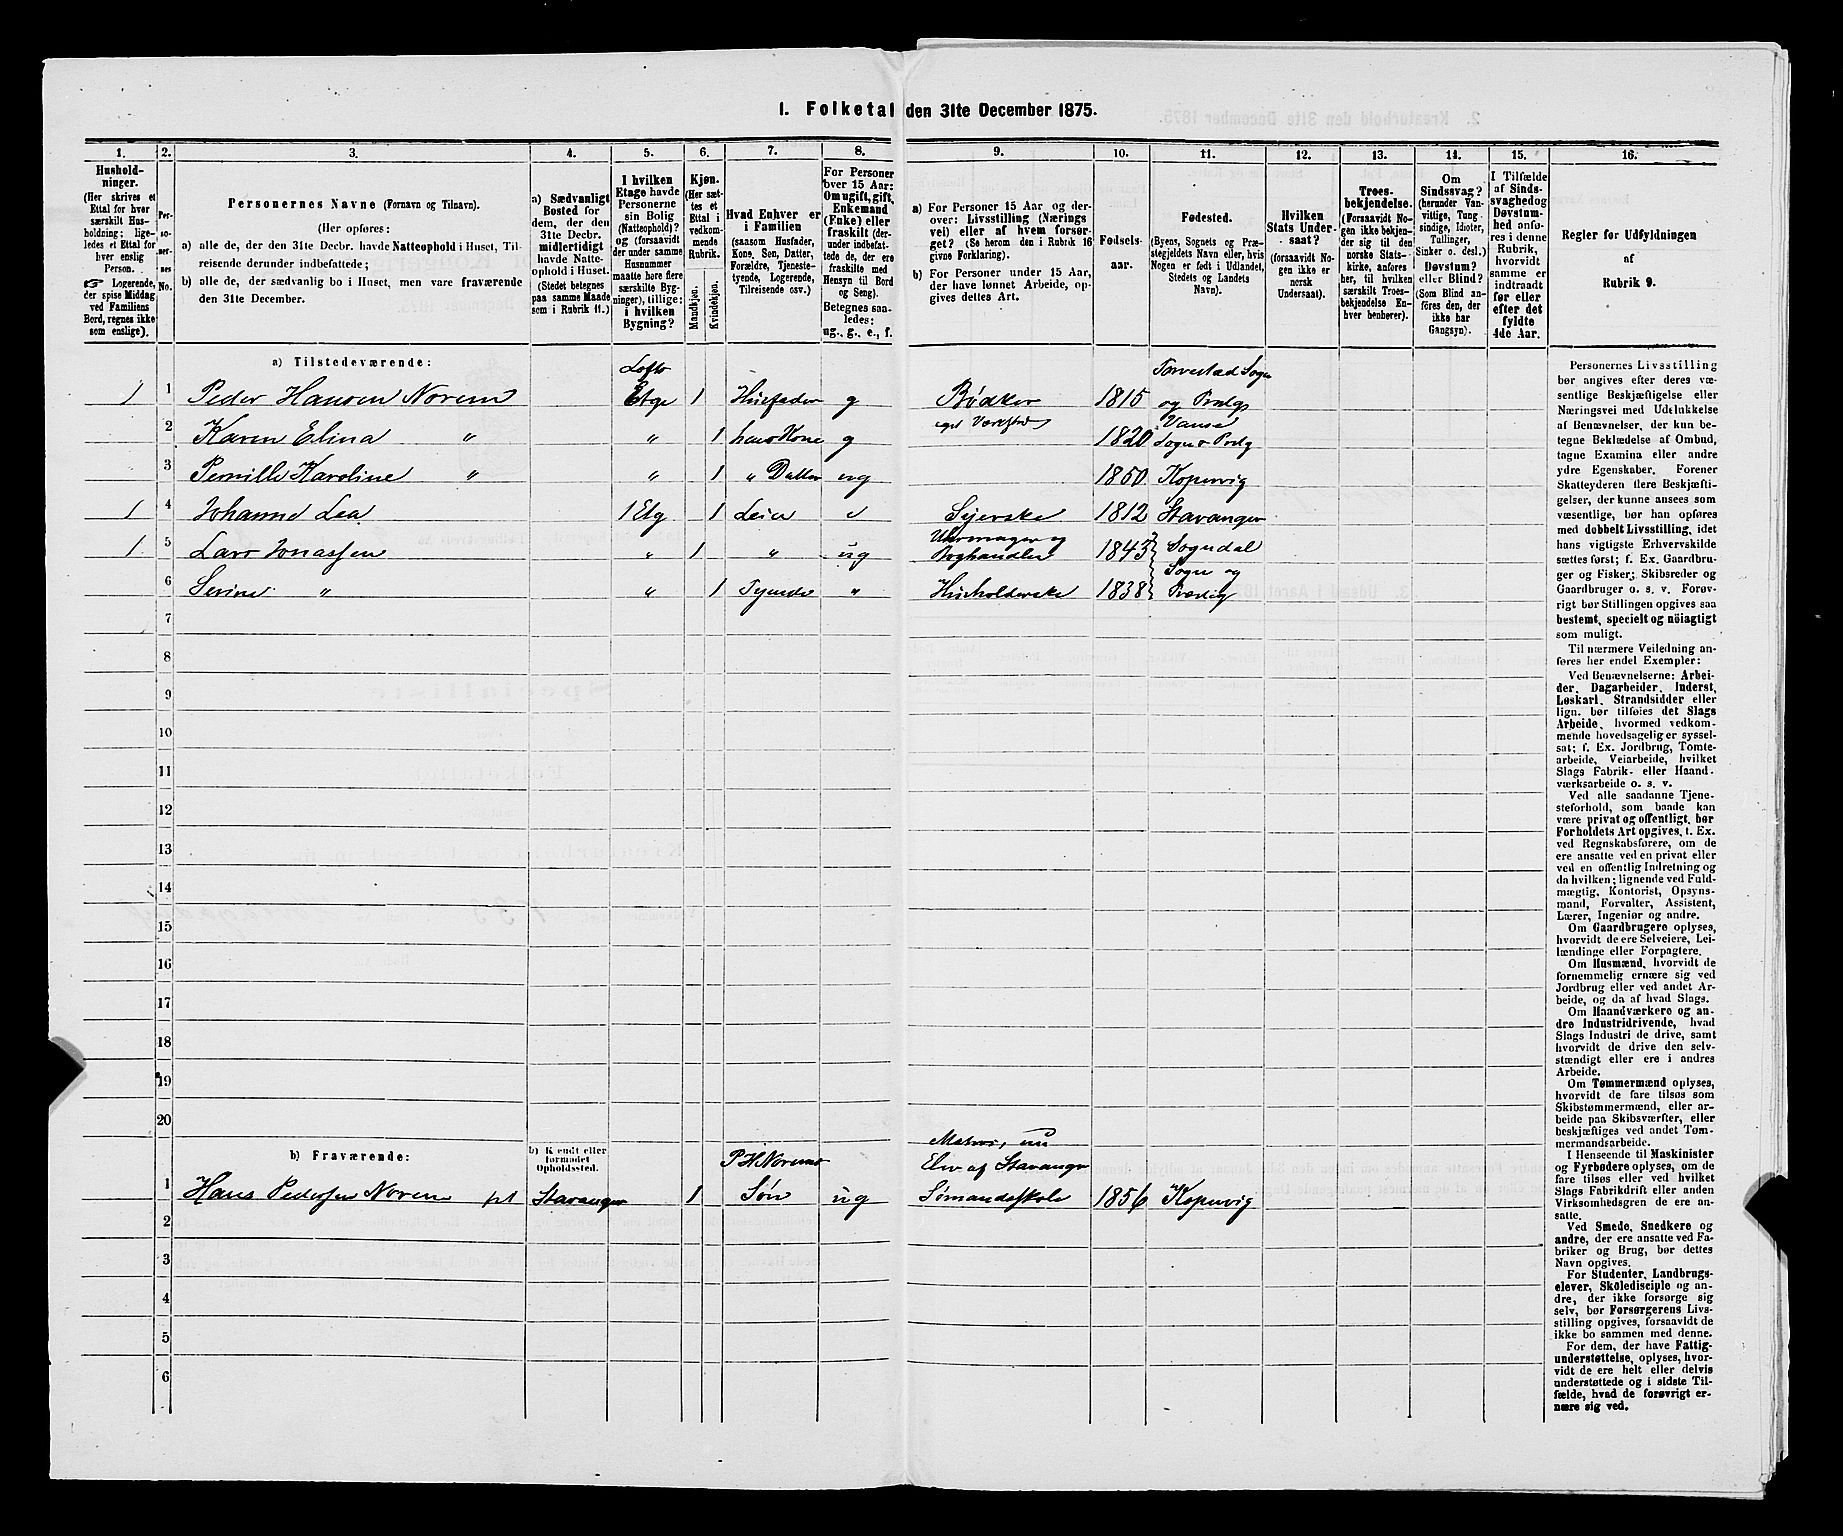 1. Folketal den 31te December 1875.
1. 2. 3. 4. 5. 6. 7. 8. 9. 10. 11. 12. 13. 14. 15. 16.
Hushold-
ninger.
(Her skrives et
Ettal for hver
særskilt Hus-
holdning; lige-
ledes et Ettal for
hver enslig
Person.
☞ Logerende,
der spise Middag
ved Familiens
Bord, regnes ikke
som enslige).
Per-
so-
ner-
nes
No.
Personernes Navne (Fornavn og Tilnavn).
(Her opføres:
a) alle de, der den 31te Decbr. havde Natteophold i Huset, Til-
reisende derunder indbefattede;
b) alle de, der sædvanlig bo i Huset, men vare fraværende
den 31te December.
a) Sædvanligt
Bosted for
dem, der den
31te Decbr.
midlertidigt
havde Natte-
ophold i Huset.
(Stedet betegnes
paa samme Maade
som i Rubrik 11.)
I hvilken
Etage havde
Personerne
sin Bolig
(Natteophold)?
og (forsaavidt
der under samme
Husnummer
maatte høre flere
særskilte Byg-
ninger), tillige:
i hvilken
Bygning?
Kjøn.
(Her sæt-
tes et
Ettal i
vedkom-
mende
Rubrik.
Mandkjøn.
Kvindekjøn.
Hvad Enhver er
i Familien
(saasom Husfader,
Kone, Søn, Datter,
Forældre, Tjeneste-
tyende, Logerende,
Tilreisende osv.)
For Personer
over 15 Aar:
Om ugift, gift,
Enkemand
(Enke) eller
fraskilt (der-
under indbefat-
tede de, der ere
fraskilte med
Hensyn til Bord
og Seng).
Betegnes saa-
ledes:
ug., g., e., f.
a) For Personer 15 Aar og der-
over: Livsstilling (Nærings
vei) eller af hvem forsør-
get? (Se herom den i Rubrik 16
givne Forklaring).
b) For Personer under 15 Aar,
der have lønnet Arbeide, op-
gives dettes Art.
Fødsels-
aar.
Fødested.
(Byens, Sognets og Præ-
stegjeldets Navn eller, hvis
Nogen er født i Udlandet,
Stedets og Landets
Navn).
Hvilken
Stats Under-
saat?
(forsaavidt No-
gen ikke er
norsk
Undersaat).
Troes-
bekjendelse.
(Forsaavidt No-
gen ikke bekjen-
der sig til den
norske Stats-
kirke, anføres
her, til hvilken
særskilt Troes-
bekjendelse En-
hver henhører).
Om
Sindssvag?
(herunder Van-
vittige, Tung-
sindige, Idioter,
Tullinger,
Sinker o. desl.)
Døvstum?
eller Blind?
(Som Blind an-
føres den, der
ikke har
Gangsyn).
I Tilfælde
af Sinds-
svaghed og
Døvstum-
hed anfø-
res i denne
Rubrik,
hvorvidt
samme er
indtraadt
før eller
efter det
fyldte
4de Aar.
Regler for Udfyldningen
af
Rubrik 9.
a) Tilstedeværende:
Lofts Torvestad Sogn
1 1 Peder Hansen Norem Etge 1 Husfader g Bødker 1815 og Prælgj
eget Værksted Vanse
2 Karen Elina " " 1 hans Kone g 1820 Sogn o Prlg
3 Pernille Karoline " " 1 " Datter ug 1850 Kopervig
1 4 Johanne Lea 1 Etg 1 Leier e Syerske 1812 Stavanger
Uhrmager og
1 5 Lars Jonassen " 1 " ug Boghandler 1843 Sogndal
Sogn og
6 Serine " " 1 Tyende " Husholderske 1838 Præstg
7
8
9
10
11
12
13
14
15
16
17
18
19
20
b) Fraværende:
b) Kjendt eller
formodet
Opholdssted.
P H Norems Matros, nu
Elev af Stavanger
1 Hans Pedersen Norem pt Stavanger 1 Søn ug Sømandsskole 1856 Kopervig
2
3
4
5
6
Personernes Livsstilling
bør angives efter deres væ-
sentlige Beskjæftigelse eller
Næringsvei med Udelukkelse
af Benævnelser, der kun be-
tegne Beklædelse af Ombud,
tagne Examina eller andre
ydre Egenskaber. Forener
Skatteyderen flere Beskjæfti-
gelser, der kunne ansees som
væsentlige, bør han opføres
med dobbelt Livsstilling, idet
hans vigtigste Erhvervskilde
sættes først; f. Ex. Gaardbru-
ger og Fisker; Skibsreder og
Gaardbruger o. s. v. Forøv-
rigt bør Stillingen opgives saa
bestemt, specielt og nöiagtigt
som muligt.
Til nærmere Veiledning an-
føres her endel Exempler:
Ved Benævnelserne: Arbei-
der, Dagarbeider, Inderst,
Løskarl, Strandsidder eller
lign. bør tilføies det Slags
Arbeide, hvormed vedkom-
mende hovedsagelig er syssel-
sat; f. Ex. Jordbrug, Tomte-
arbeide, Veiarbeide, hvilket
Slags Fabrik- eller Haand-
værksarbeide o. s. v.
Ved alle saadanne Tjene-
steforhold, som baade kan
være privat og offentligt, bør
Forholdets Art opgives, t. Ex.
ved Regnskabsførere, om de
ere ansatte ved en privat eller
ved en offentlig Indretning og
da hvilken; lignende ved Fuld-
mægtig, Kontorist, Opsyns-
mand, Forvalter, Assistent,
Lærer, Ingeniør og andre.
Om Gaardbrugere oplyses,
hvorvidt de ere Selveiere, Lei-
lændinge eller Forpagtere.
Om Husmænd, hvorvidt de
fornemmelig ernære sig ved
Jordbrug eller ved andet Ar-
beide, og da af hvad Slags.
Om Haandværkere og an-
dre Industridrivende, hvad
Slags Industri de drive, samt
hvorvidt de drive den selv-
stændigt eller ere i andres
Arbeide.
Om Tømmermænd oplyses,
hvorvidt de fare tilsøs som
Skibstømmermænd, eller ar-
beide paa Skibsværfter, eller
beskjæftiges ved andet Tøm-
mermandsarbeide.
I Henseende til Maskinister
og Fyrbødere oplyses, om de
fare tilsøs eller ved hvilket
Slags Fabrikdrift eller anden
Virksomhedsgren de ere an-
satte.
Ved Smede, Snedkere og
andre, der ere ansatte ved Fa-
briker og Brug, bør dettes
Navn opgives.
For Studenter, Landbrugs-
elever, Skoledisciple og an-
dre, der ikke forsørge sig
selv, bør Forsørgerens Livs-
stilling opgives, forsaavidt de
ikke bo sammen med denne.
For dem, der have Fattig-
understøttelse, oplyses, hvor-
vidt de ere helt eller delvis
understøttede og i sidste Til-
fælde, hvad de forøvrigt er-
nære sig ved.